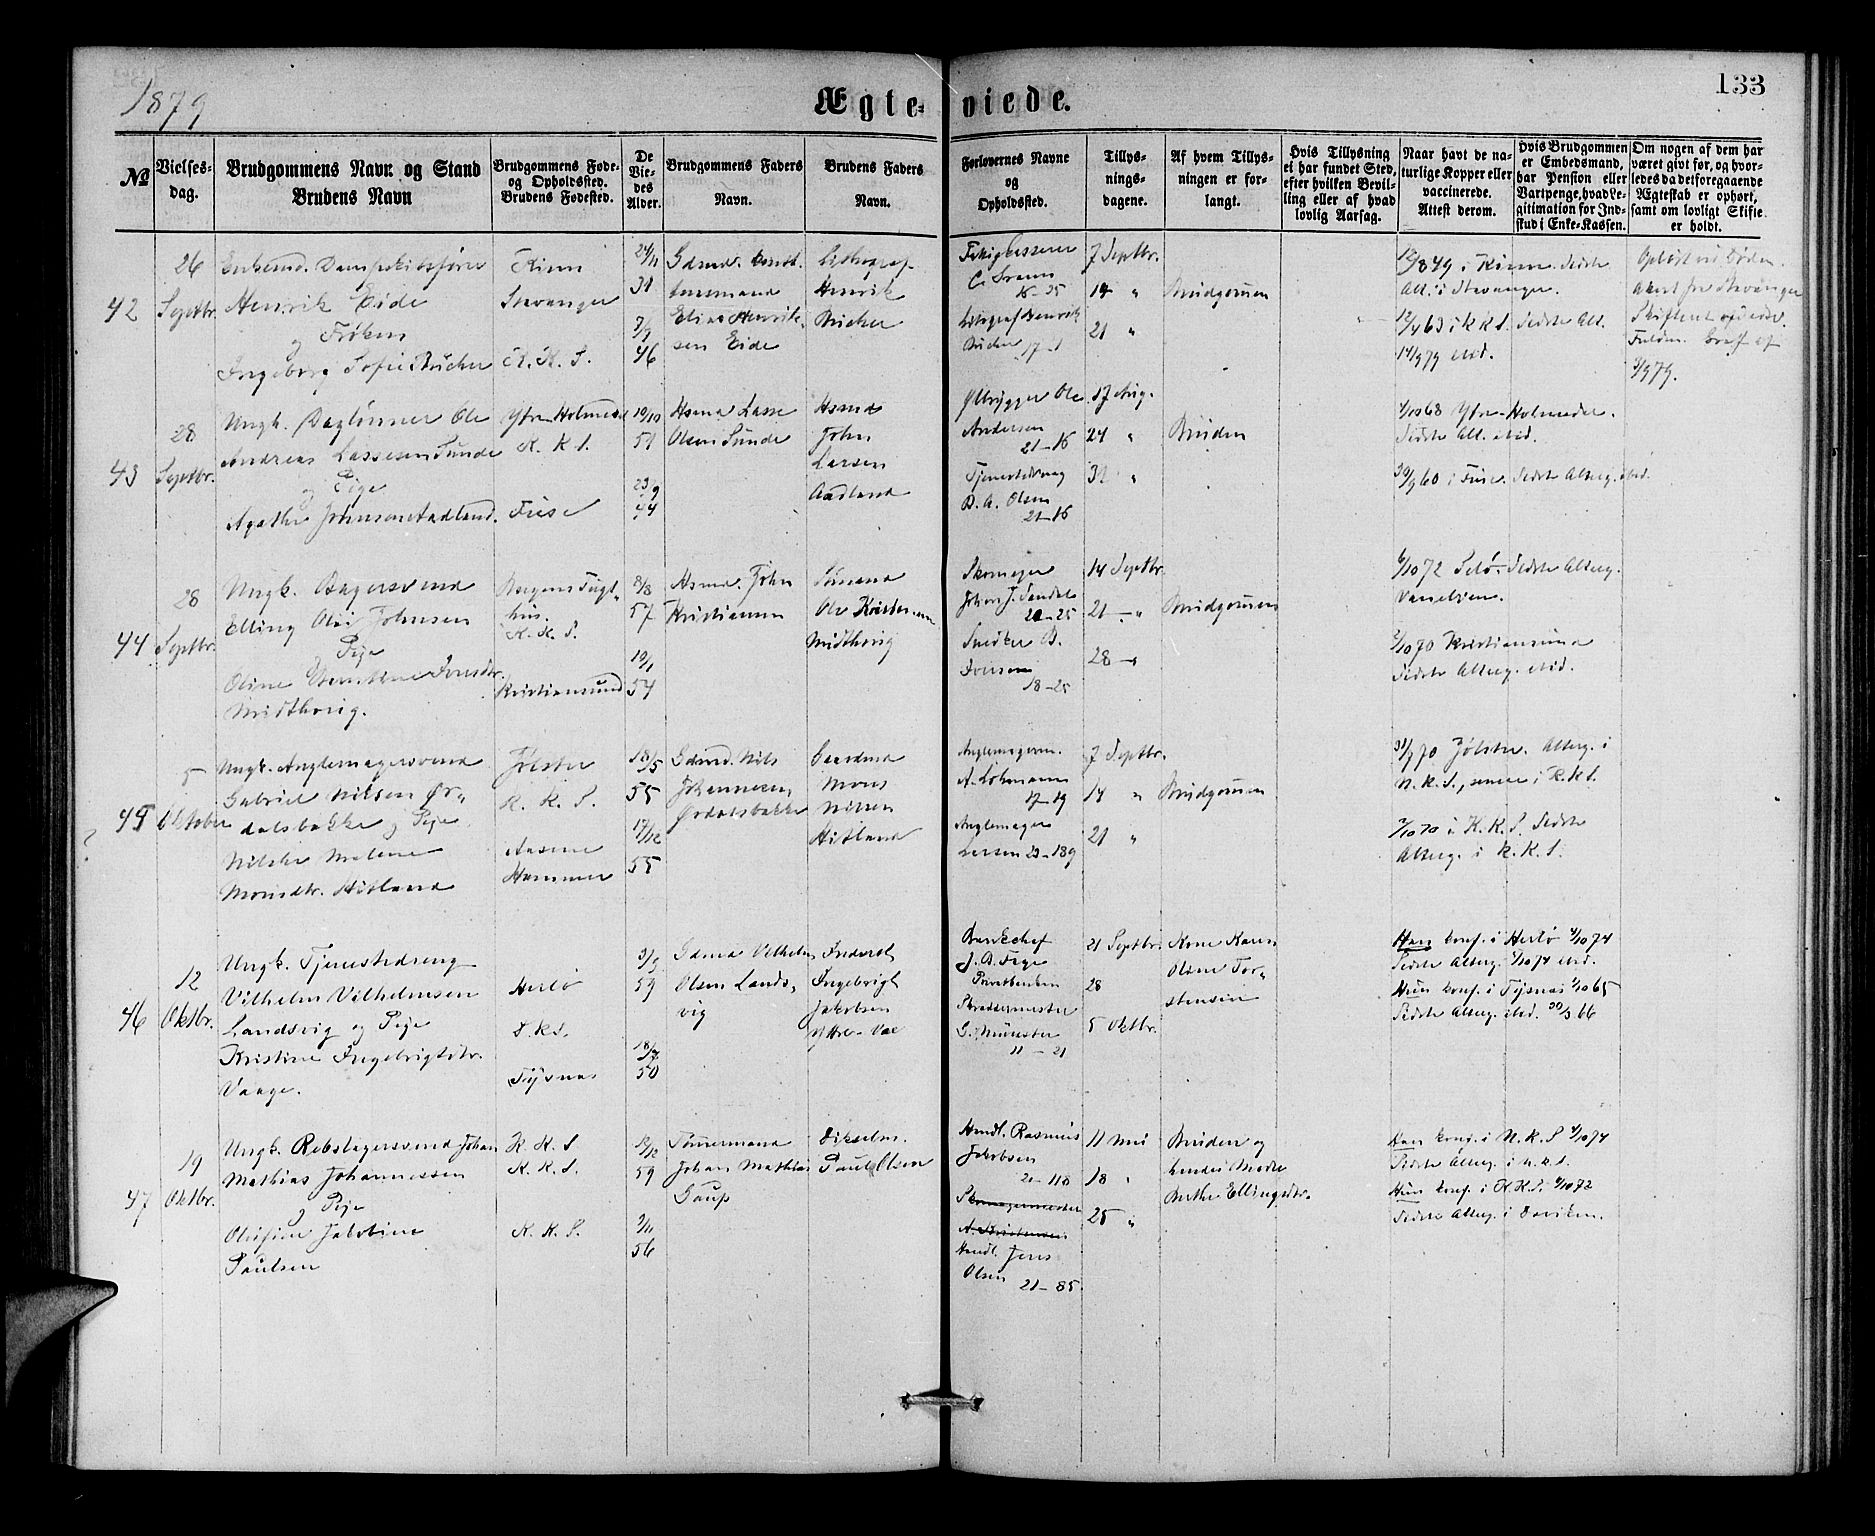 1879
Ægteviede.
133
№
Vielsesdag.
Brudgommens Navn og Stand
Brudens Navn
Brudgommens Føde- og Opholdssted.
Brudens Fødested.
De Viedes Alder.
Brudgommens Faders Navn.
Brudens Faders Navn.
Forlovernes Navne og Opholdssted.
Tillysningsdagene.
Af hvem Tillysningen er forlangt.
Hvis Tillysning ei har fundet Sted, efter hvilken Bevilling eller af hvad lovlig Aarsag.
Naar havt de naturlige Kopper eller vaccinerede. Attest derom.
Hvis Brudgommen er Embedsmand, har Pension eller Vartpenge, hvad Legitimation for Indskud i Enke-Kassen.
Om nogen af dem har været gift før, og hvorledes da det foregaaende Ægteskab er ophørt, samt om lovligt Skifte er holdt.
42
26 Septbr.
Enkemd. Dampskibsfører
Henrik Eide
og Frøken
Ingeborg Sofie Bucher
Kinn
Stavanger
K. K. S.
24/11
31
7/9
46
Gdmd.
Elias Henriksen Eide
Lithograf
Henrik
Bucher
C. Sraum
16-25
Litograf Henrik
Bucher 17-1
7 Septbr.
14 "
21 "
Brudgommen
i Kinn. Sidste
Alt. i Stavanger.
12/4 63 i K.K.S. Sidste Alt.
14/9 79 ibid.
Opløst ved Døden.
Attest fra Stavanger
43
28 Septbr.
Ungk. Daglønner Ole
Andreas Lassesen Sunde
og Pige
Agathe Johnsen Aadland.
Ytre Holmedal
K. K. S.
Fuse
10/10
51
23/9
44
Hsmd Lasse
Olsen Sunde
Hsmd
John
Larsen
Aadland
Ølbrygger Ole
Andersen
21-16
B. A. Olsen
21-16
17 Aug.
24 "
31 "
Bruden
1/10 68 Ytre-Holmedal.
Sidste Alt. ibid.
30/9 60 i Fuse. Sidste Alterg. ibid.
44
28 Septbr.
Ungk. Bagersvend
Elling Olai Johnsen
Pige
Oline
Midthorig.
Bergens Tugthus.
K. K. S.
Kristiansund
8/8
57
10/1
54
Hsmd. John
Kristiansen
Sømand
Ole Kristensen
Midthorig
Skomager
Johan J. Sandal
20-25
Snedker B.
Iversen
18-25
14 Septbr.
21 - "
28 -
Brudgommen
6/10 72 Selø. Sidste Alterg.
2/10 70 Kristiansund
Sidste Alterg. ibid.
45
5 Oktober
Ungk. Anglemagersvend
Gabriel Nilsen Ørdalsbakke og Pige
Nilske Malene
Monsdtr. Hitland
Jølster
K. K. S.
Aasene
Hammer
18/5
55
17/12
55
Gdmd. Nils
Johannesen
Ørdalsbakke
Gaardmd
Mons
Nilsen
Hitland
Anglemagerm.
A. Lohmann
17-19
Anglemager
Larsen 23-189
7 Septbr.
14 "
21 "
Brudgommen
31/7 70 Jølster. Alterg. i
N. K. S., senere i K.K.S.
2/10 70 i K.K.S. Sidste
Alterg. i K.K.S.
46
12 Oktbr.
Ungk. Tjenestedreng
Vilhelm Vilhelmsen
Landsvig og Pige
Kristine Ingebrigtsdtr.
Vaage.
Herlø
D.K.S.
Tysnæs
3/5
59
18/7
50
Gdmd Vilhelm
Olsen Landsvig
Inderst
Ingebrigt
Jakobsen
Bankchef
J. B. Feye
Privatbanken
Skræddermester
G. Münster
11-21
21 Septbr.
28
5 Oktbr.
Kone Karen
Olsen Torstensen
Han konf. i Herlø 4/10 74
Sidste Alterg. 4/10 74 ibid.
Hun konf. i Tysnæs 1/10 65
Sidste Alterg. ibid. 30/3 66
47
19 Oktbr.
Ungk. Rebslagersvend Johan
Mathias Johannessen
og Pige
Olufine Jakobine
Paulsen
K. K. S
K. K. S.
K. K. S.
12/12
59
2/11
56
Tømmermand
Johan Mathias
Gaup
Paul Olsen
Handl. Rasmus
Jakobsen
20-118
Skomagermester
A. Kristensen
Handl. Jens
Olsen 21-85
11 Mai
18 "
25 "
Bruden og
hendes Moder
Berthe Ellingsdtr.
Han konf. i N.K.S 4/10 74
Sidste Alterg. i N.K.S.
Hun konf. i K.K.S. 6/10 72
Sidste Alterg. i Daviken.